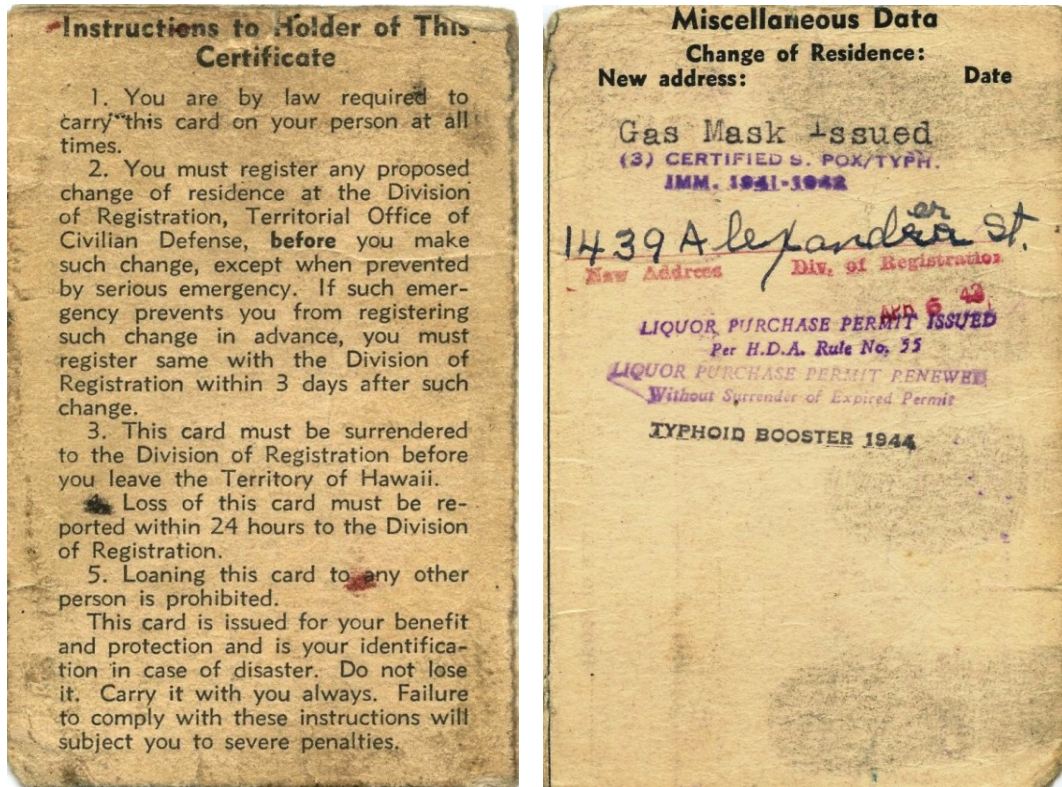 Instructions to Holder of This
Certificate
1. You are by law required to
carry this card on your person at all
times.
2. You must register any proposed
change of residence at the Division
of Registration, Territorial Office of
Civilian Defense, before you make
such change, except when prevented
by serious emergency. If such emer-
gency prevents you from registering
such change in advance, you must
register same with the Division of
Registration within 3 days after such
change.
3. This card must be surrendered
to the Division of Registration before
you leave the Territory of Hawaii.
4. Loss of this card must be re-
ported within 24 hours to the Division
of Registration.
5. Loaning this card to any other
person is prohibited.
This card is issued for your benefit
and protection and is your identifica-
tion in case of disaster. Do not lose
it. Carry it with you always. Failure
to comply with these instructions will
subject you to severe penalties.
Miscellaneous Data
Change of Residence:
New address: Date
Gas Mask Issued
(3) CERTIFIED S. POX/TYPH.
IMM. 1941-1942
1439 Alexander St.
New Address Div. of Registration
APR 6 43
LIQUOR PURCHASE PERMIT ISSUED
Per H.D.A. Rule No. 55
LIQUOR PURCHASE PERMIT RENEWED
Without Surrender of Expired Permit
TYPHOID BOOSTER 1944